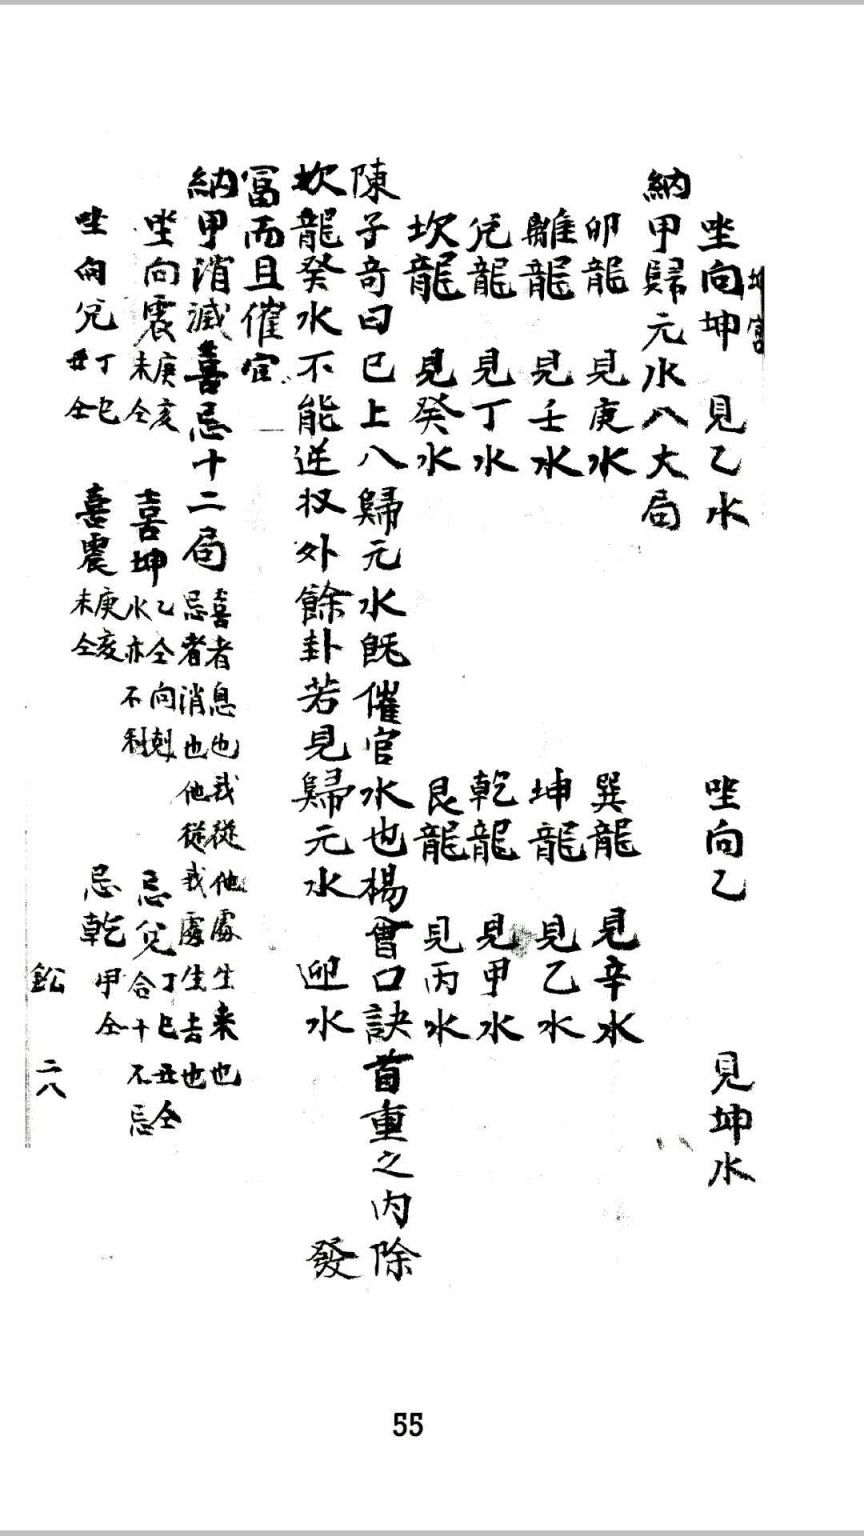 坤宮
坐向坤　見乙水　坐向乙　見坤水
納甲歸元水八大局
卯龍　見庚水　巽龍　見辛水
離龍　見壬水　坤龍　見乙水
兌龍　見丁水　乾龍　見甲水
坎龍　見癸水　艮龍　見丙水
陳子奇曰已上八歸元水旣催官水也楊曾口訣首重之內除
坎龍癸水不能逆收外餘卦若見歸元水　迎水　發
富而且催官
納甲消滅喜忌十二局
喜者息也我從他處生來也
忌者消也他從我處生去也
坐向震庚亥未仝　喜坤乙仝向剋水亦不利　忌兌丁巳丑仝合十不忌
坐向兌丁巳丑仝　喜震庚亥未仝　忌乾甲仝
二八
55